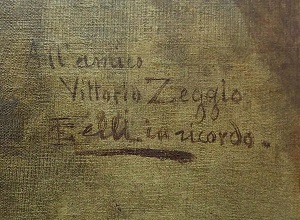 All'amico
Vittorio Zeggio
in ricordo.